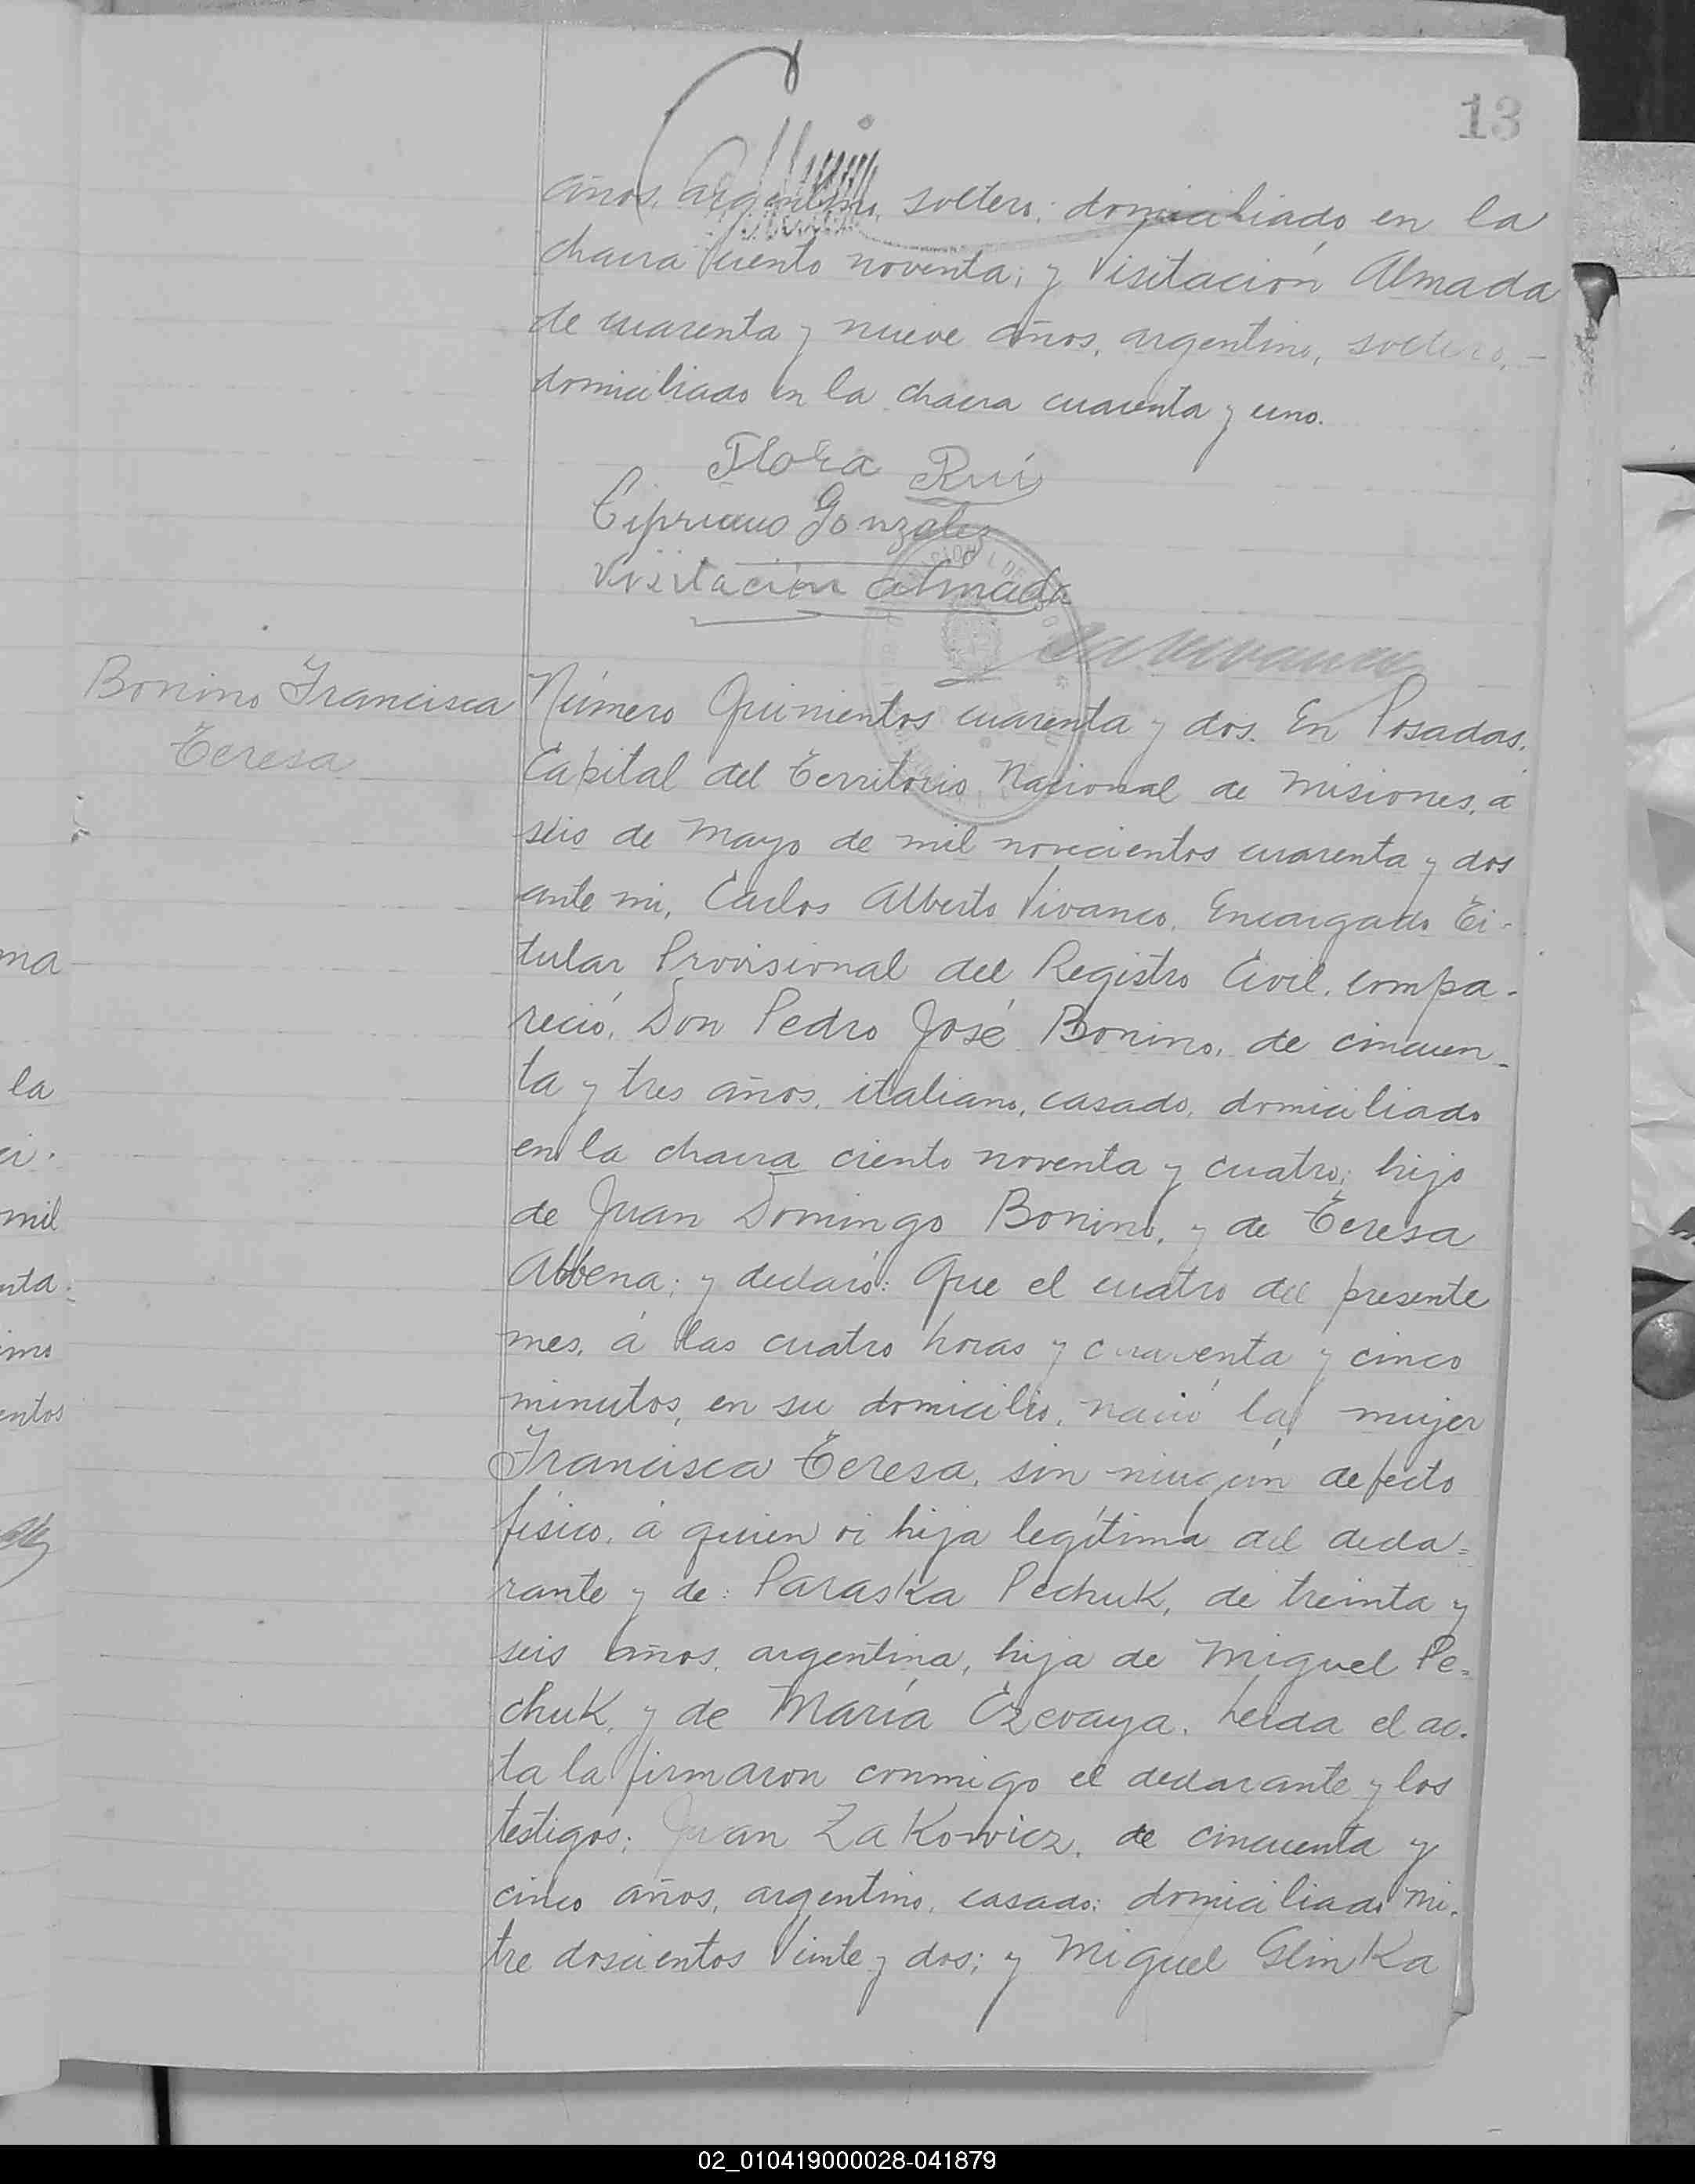 13
años, argentino, soltero; domiciliado en la
chacra ciento noventa; y Visitación Almada
de cuarenta y nueve años, argentino, soltero,-
domiciliado en la chacra cuarenta y uno.
Flora Rui
Cipriano Gonzalez
Visitación Almada
Bonino Francisca
Teresa
Número Quinientos cuarenta y dos. En Posadas,
Capital del Territorio Nacional de Misiones, á
seis de Mayo de mil novecientos cuarenta y dos
ante mi, Carlos Alberto Vivanco, Encargado Ti-
tular Provisional del Registro Civil, compa-
reció, Don Pedro José Bonino, de cincuen-
ta y tres años, italiano, casado, domiciliado
en la chacra ciento noventa y cuatro; hijo
de Juan Domingo Bonino, y de Teresa
Abbena; y declaró: Que el cuatro del presente
mes, á las cuatro horas y cuarenta y cinco
minutos, en su domicilio, nació la mujer
Francisca Teresa, sin ningún defecto
físico, á quien vi hija legítima del decla=
rante y de: Paraska Pechuk, de treinta y
seis años, argentina, hija de Miguel Pe=
chuk, y de María Ezevaya. Leída el ac-
ta la firmaron conmigo el declarante y los
testigos: Juan Zakowicz, de cincuenta y
cinco años, argentino, casado; domiciliado Mi-
tre doscientos Veinte y dos; y Miguel Glinka
ma
la
ci.
mil
nta
imo
entos
02_010419000028-041879